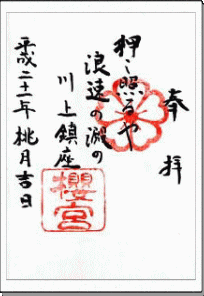 奉拝
押し照るや
浪速の淵の
川上鎮座
櫻宮
平成二十一年桃月吉日